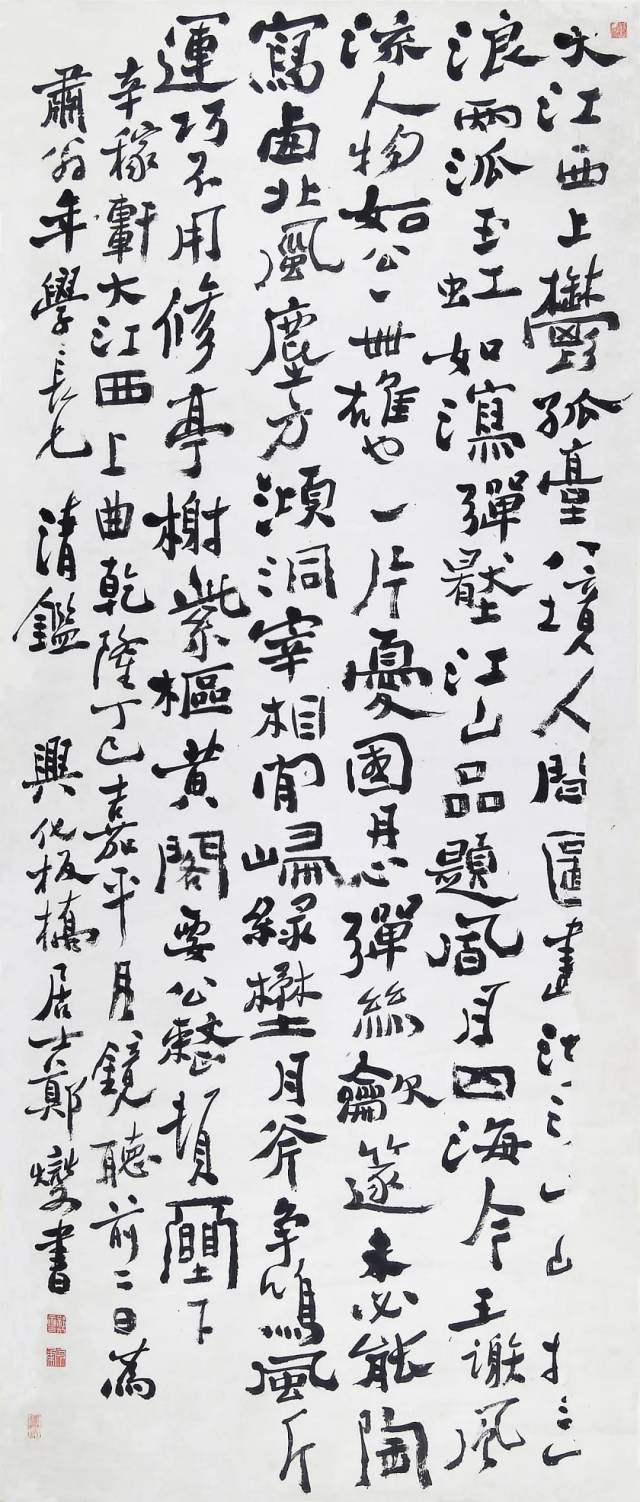 大江西上鬱孤臺八境人間圖畫地
浪兩派玉虹如瀉彈壓江山品題風月四海今王謝風
流人物如公一世雄也一片憂國丹心彈絲龡篴未必能陶
寫西北風塵方澒洞宰相閒歸綠壄月斧爭鳴風斤
運巧不用修亭榭紫樞黃閣要公整頓下
辛稼軒大江西上曲乾隆丁巳嘉平月鏡聽前二日為
肅翁年學長兄 清鑑 興化板橋居士鄭燮書